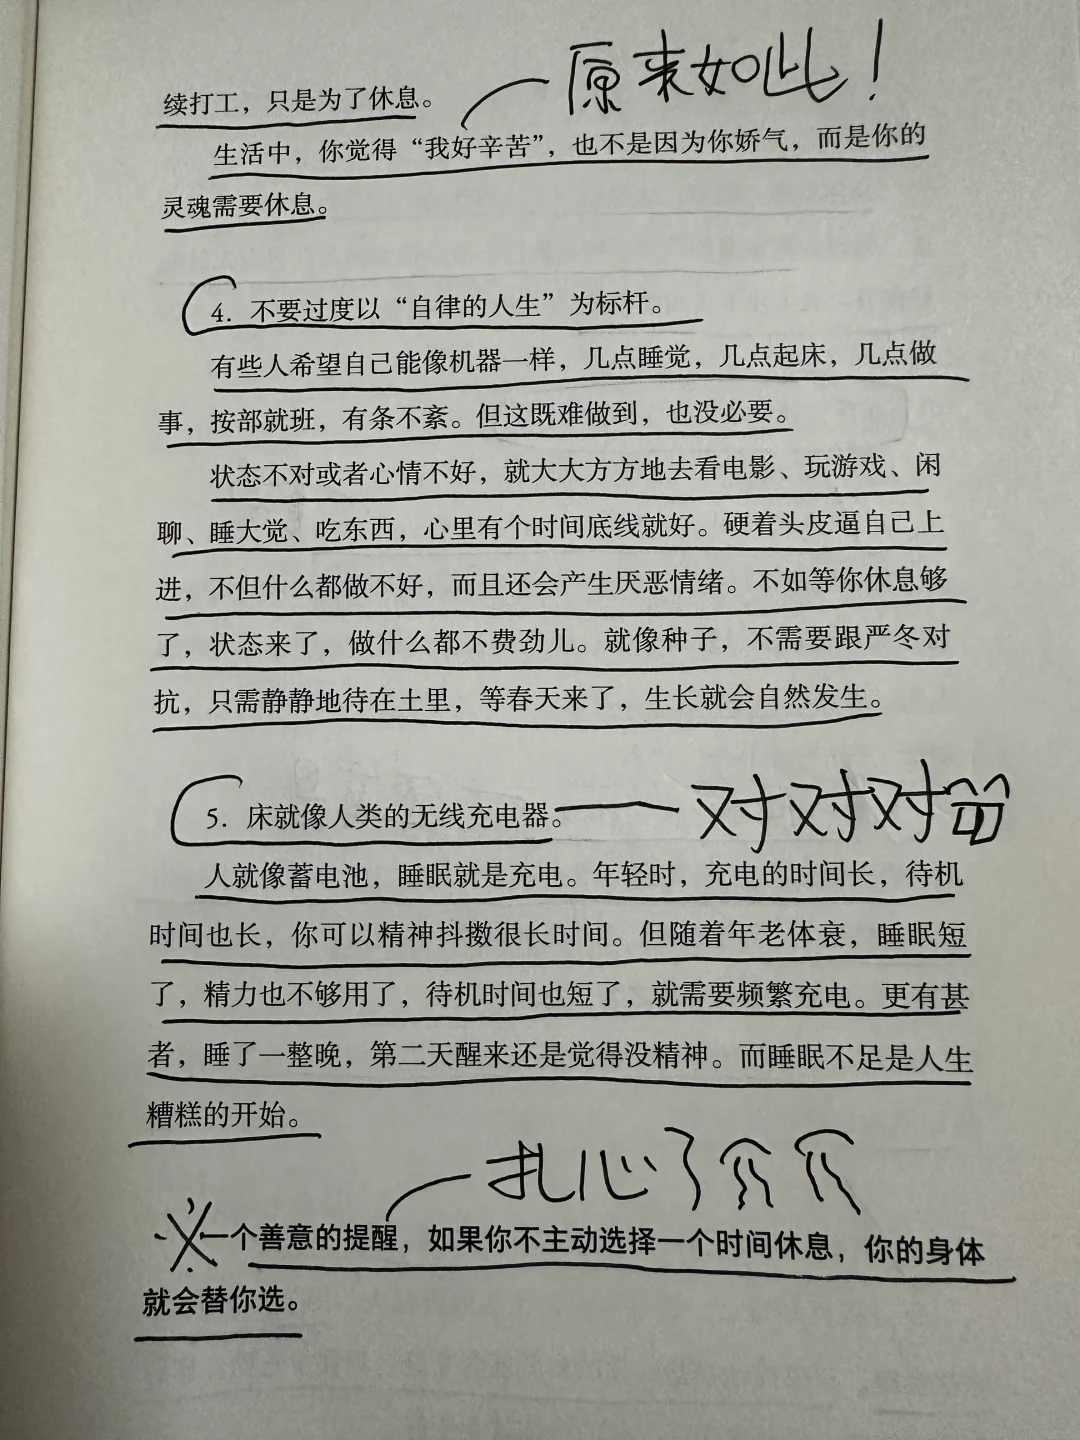 原来如此！
续打工，只是为了休息。
生活中，你觉得“我好辛苦”，也不是因为你娇气，而是你的
灵魂需要休息。
4. 不要过度以“自律的人生”为标杆。
有些人希望自己能像机器一样，几点睡觉，几点起床，几点做
事，按部就班，有条不紊。但这既难做到，也没必要。
状态不对或者心情不好，就大大方方地去看电影、玩游戏、闲
聊、睡大觉、吃东西，心里有个时间底线就好。硬着头皮逼自己上
进，不但什么都做不好，而且还会产生厌恶情绪。不如等你休息够
了，状态来了，做什么都不费劲儿。就像种子，不需要跟严冬对
抗，只需静静地待在土里，等春天来了，生长就会自然发生。
5. 床就像人类的无线充电器。
对对对
人就像蓄电池，睡眠就是充电。年轻时，充电的时间长，待机
时间也长，你可以精神抖擞很长时间。但随着年老体衰，睡眠短
了，精力也不够用了，待机时间也短了，就需要频繁充电。更有甚
者，睡了一整晚，第二天醒来还是觉得没精神。而睡眠不足是人生
糟糕的开始。
扎心了
一个善意的提醒，如果你不主动选择一个时间休息，你的身体
就会替你选。